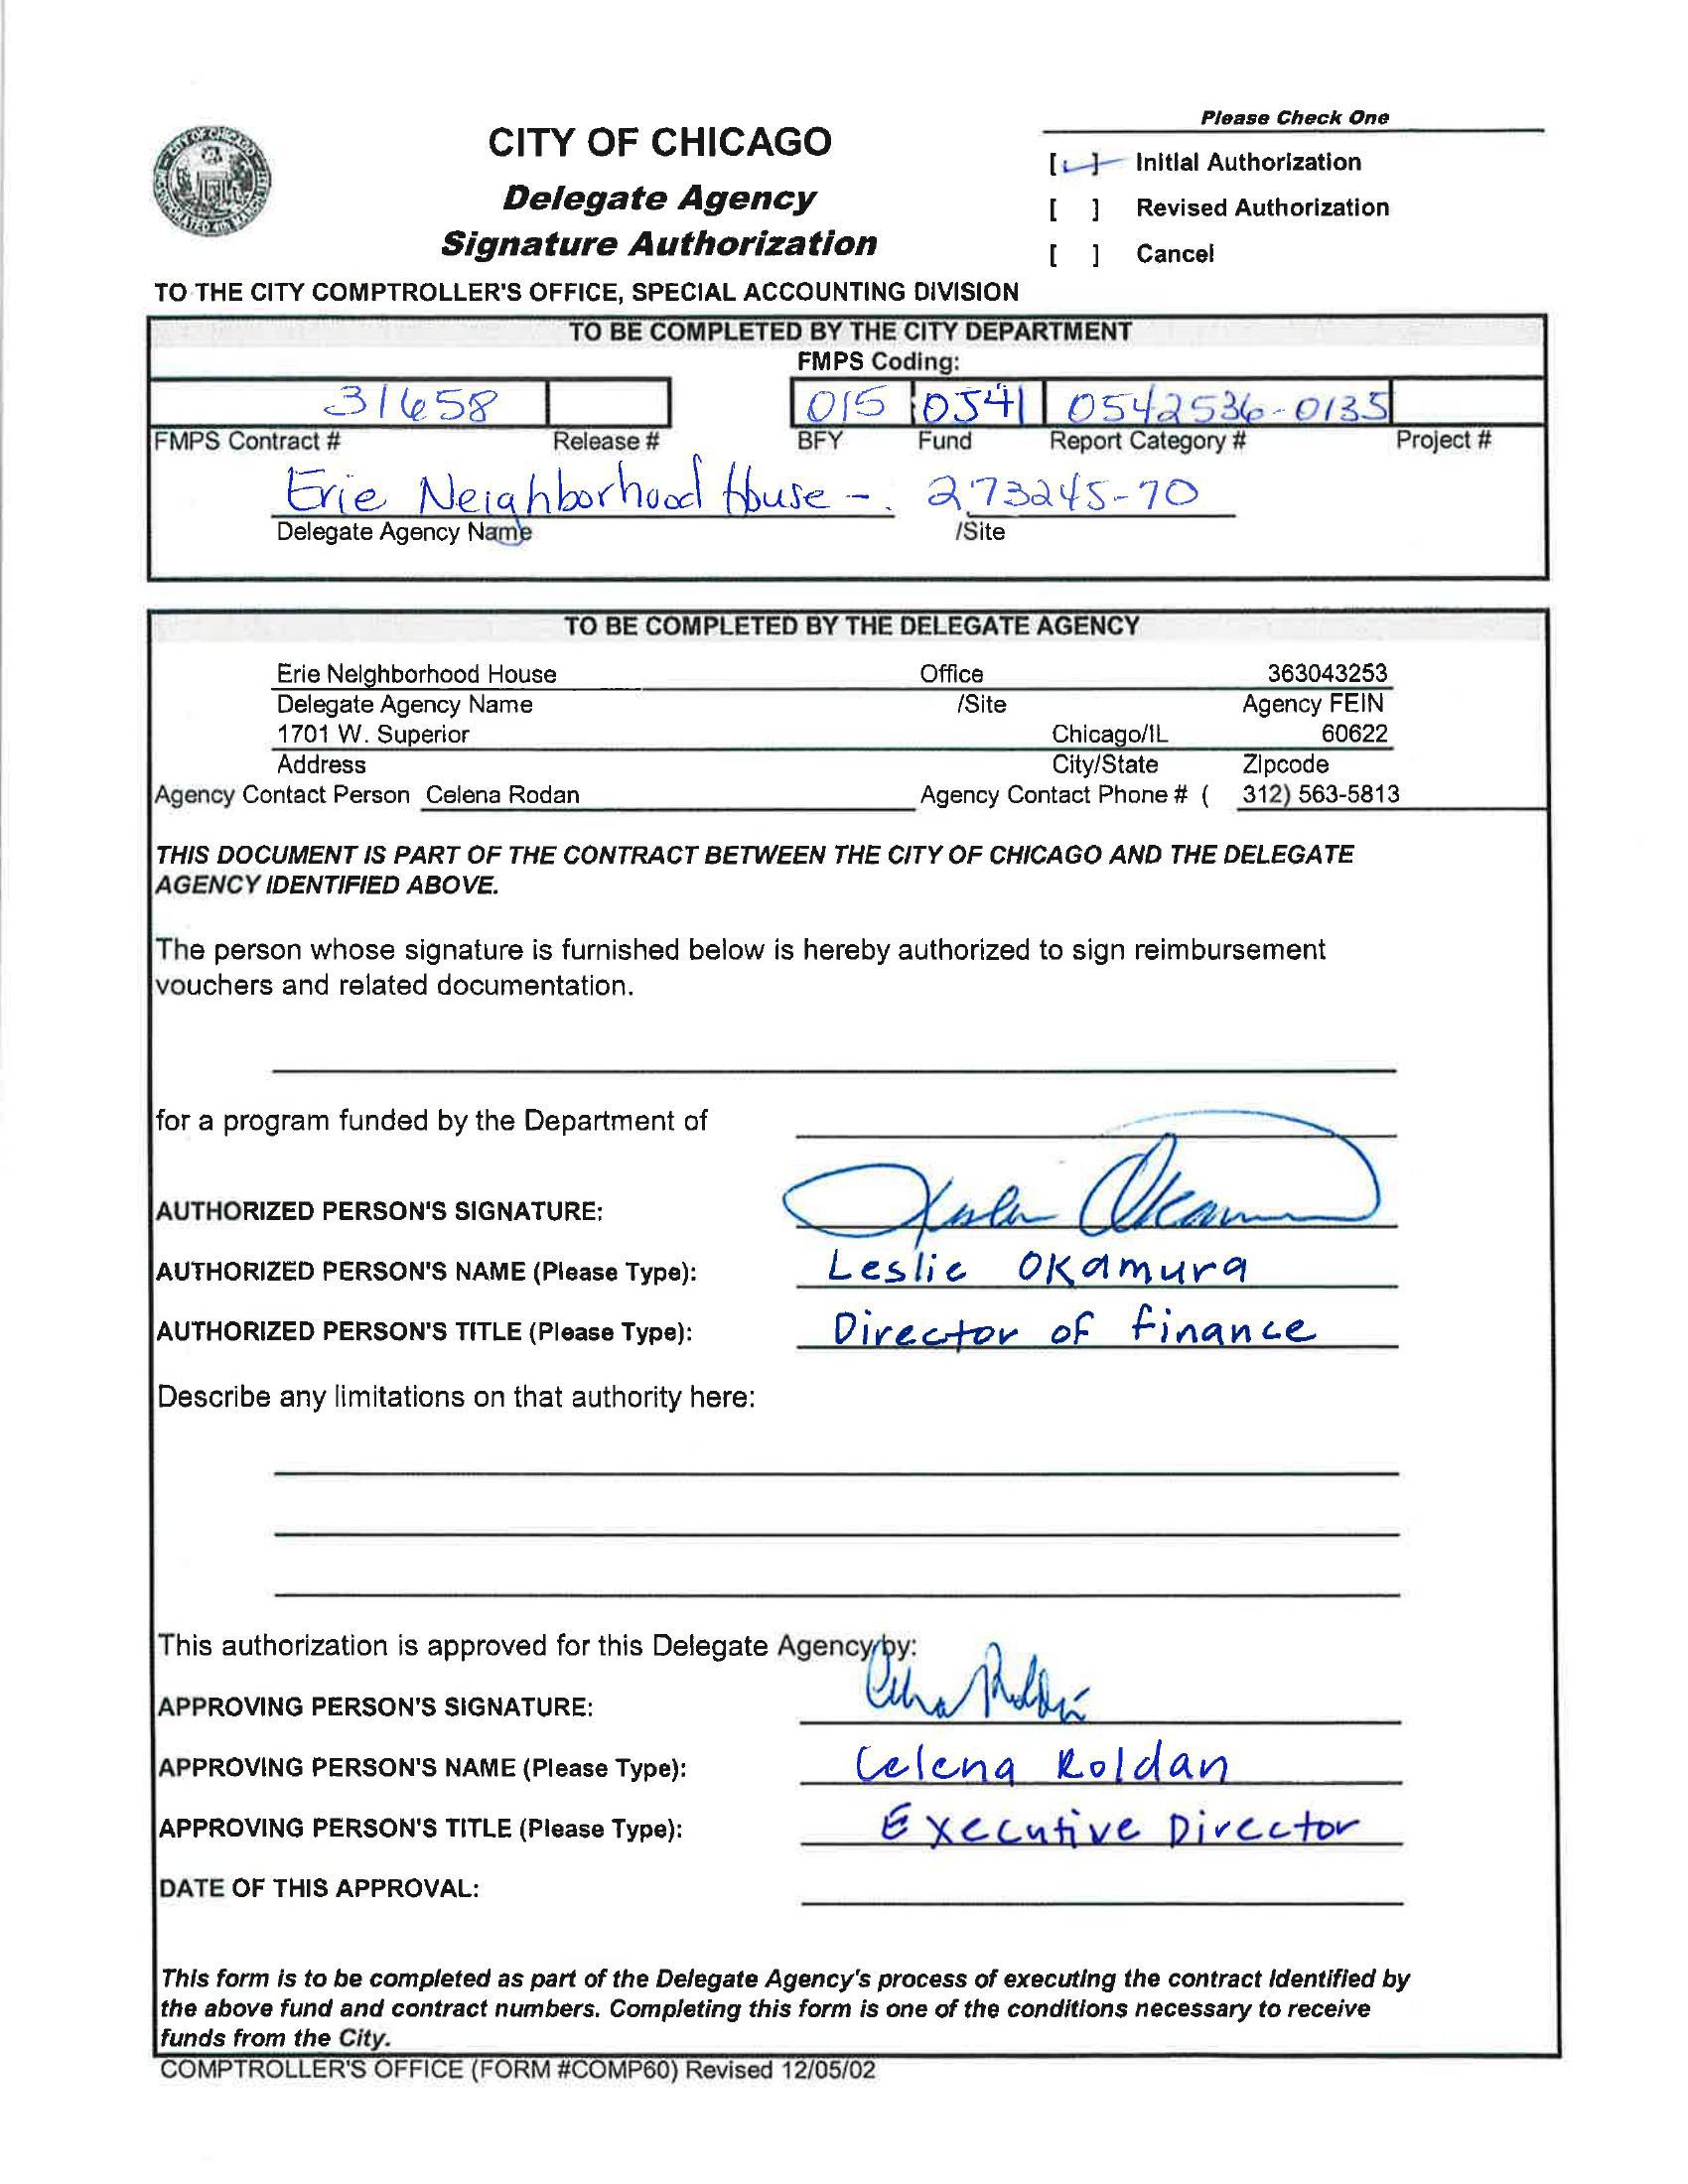 Please Check One
CITY OF CHICAGO
Delegate Agency
Signature Authorization
[ ] Initial Authorization
[ ] Revised Authorization
[ ] Cancel
TO THE CITY COMPTROLLER'S OFFICE, SPECIAL ACCOUNTING DIVISION
TO BE COMPLETED BY THE CITY DEPARTMENT
FMPS Coding:
31658 015 0541 0542536-0135
FMPS Contract # Release # BFY Fund Report Category # Project #
Erie Neighborhood House - 273245-70
Delegate Agency Name /Site
TO BE COMPLETED BY THE DELEGATE AGENCY
Erie Neighborhood House Office 363043253
Delegate Agency Name /Site Agency FEIN
1701 W. Superior Chicago/IL 60622
Address City/State Zipcode
Agency Contact Person Celena Rodan Agency Contact Phone # ( 312) 563-5813
THIS DOCUMENT IS PART OF THE CONTRACT BETWEEN THE CITY OF CHICAGO AND THE DELEGATE
AGENCY IDENTIFIED ABOVE.
The person whose signature is furnished below is hereby authorized to sign reimbursement
vouchers and related documentation.
for a program funded by the Department of
AUTHORIZED PERSON'S SIGNATURE:
AUTHORIZED PERSON'S NAME (Please Type): Leslie Okamura
AUTHORIZED PERSON'S TITLE (Please Type): Director of finance
Describe any limitations on that authority here:
This authorization is approved for this Delegate Agency by:
APPROVING PERSON'S SIGNATURE:
APPROVING PERSON'S NAME (Please Type): Celena Roldan
APPROVING PERSON'S TITLE (Please Type): Executive Director
DATE OF THIS APPROVAL:
This form is to be completed as part of the Delegate Agency's process of executing the contract identified by
the above fund and contract numbers. Completing this form is one of the conditions necessary to receive
funds from the City.
COMPTROLLER'S OFFICE (FORM #COMP60) Revised 12/05/02